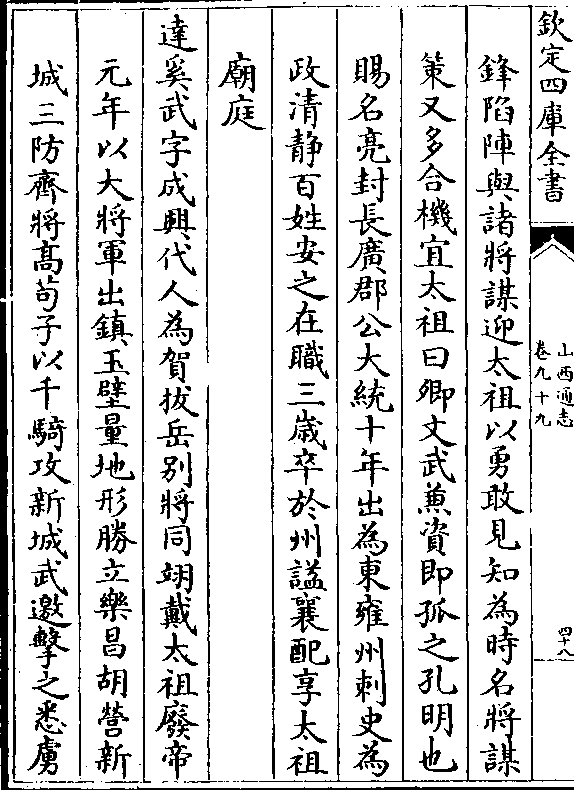 欽定四庫全書
山西通志
卷九十九
四十八
鋒陷陣與諸將謀迎太祖以勇敢見知為時名將謀
策又多合機宜太祖曰卿文武兼資即孤之孔明也
賜名亮封長廣郡公大統十年出為東雍州刺史為
政清静百姓安之在職三歲卒於州謚襄配享太祖
廟庭
達奚武字成興代人為賀拔岳别將同翊戴太祖廢帝
元年以大將軍出鎮玉壁量地形勝立樂昌胡營新
城三防齊將髙茍子以千騎攻新城武邀擊之悉虜